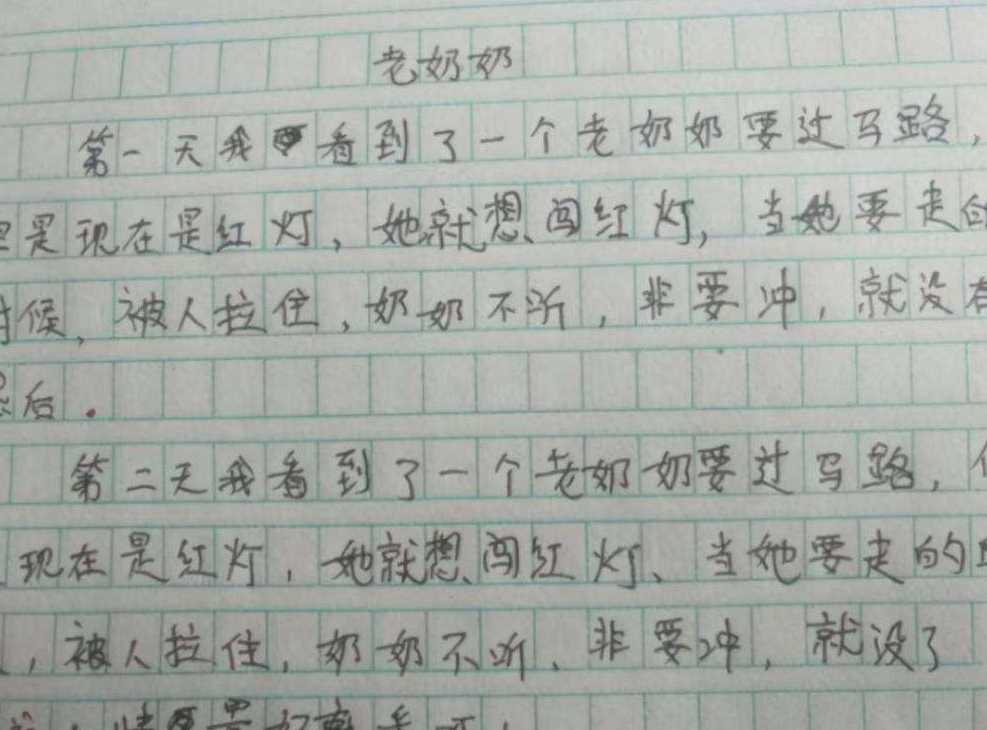 老奶奶
第一天我看到了一个老奶奶要过马路，
但是现在是红灯，她就想闯红灯，当她要走的
时候，被人拉住，奶奶不听，非要冲，就没有
然后．
第二天我看到了一个老奶奶要过马路，但
现在是红灯，她就想闯红灯、当她要走的时
，被人拉住，奶奶不听、非要冲，就没了